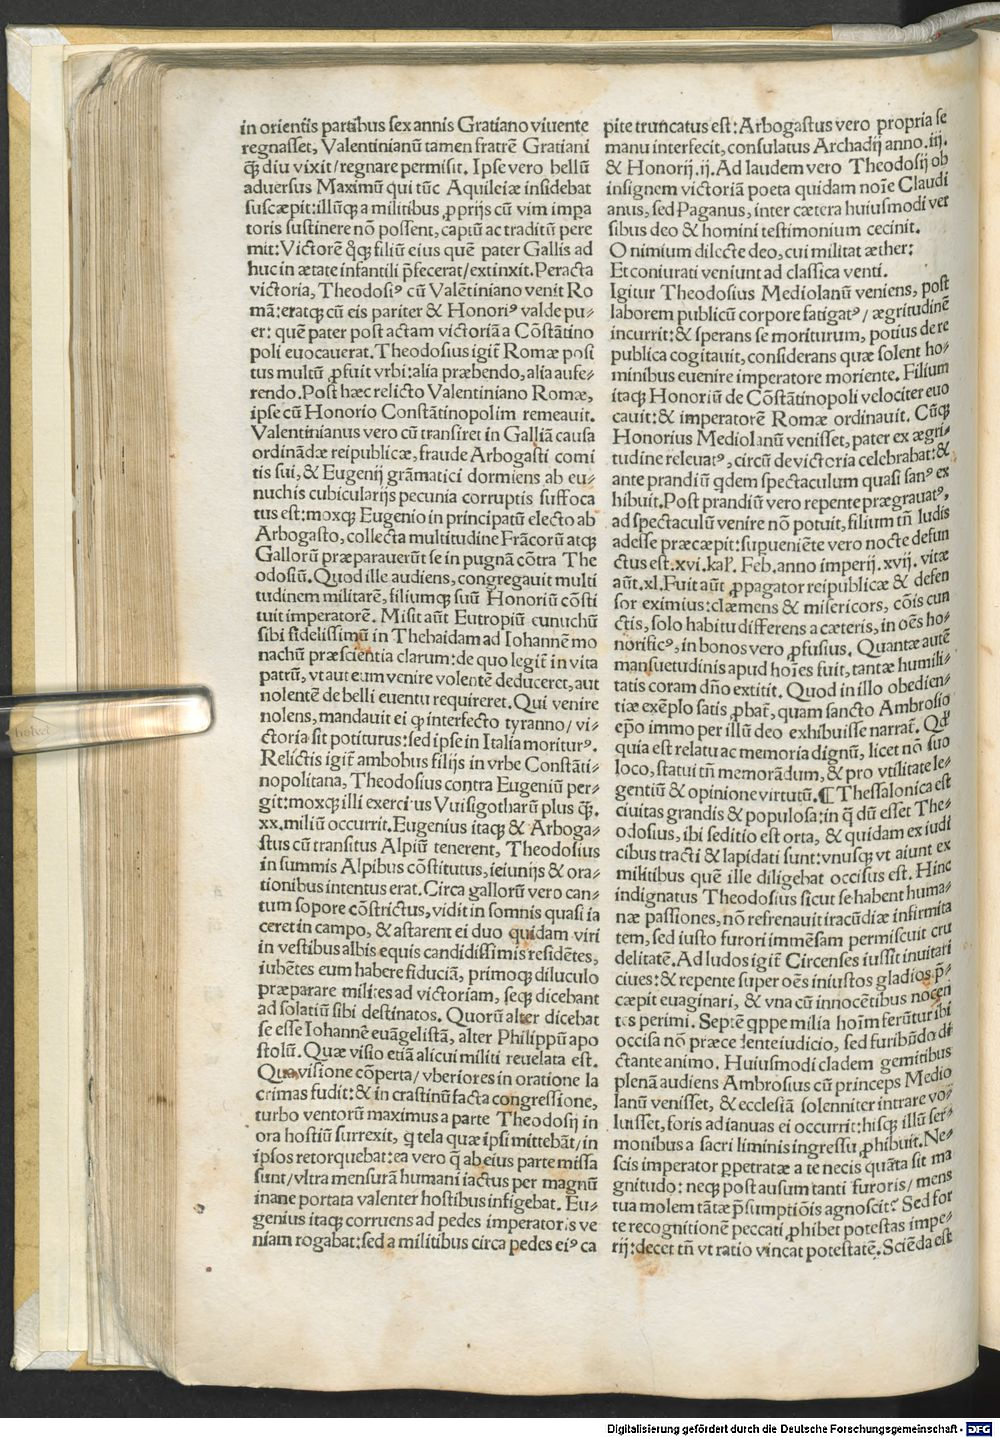 in orientis partibus sex annis Gratiano viuente
regnasset, Valentinianū tamen fratrē Gratiani
qꝫ diu vixit/regnare permisit. Ipse vero bellū
aduersus Maximū qui tūc Aquileiæ insidebat
suscæpit:illūqꝫ a militibus ꝓprijs cū vim impa
toris sustinere nō possent, captū ac traditū pere
mit:Victorē qͦqꝫ filiū eius quē pater Gallis ad
huc in ætate infantili p̄fecerat/extinxit. Peracta
victoria, Theodosiꝰ cū Valētiniano venit Ro
mā:eratqꝫ cū eis pariter & Honoriꝰ valde pu⸗
er: quē pater post actam victoriā a Cōstātino
poli euocauerat. Theodosius igit̄ Romæ posi
tus multū ꝓfuit vrbi:alia præbendo, alia aufe⸗
rendo. Post hæc relicto Valentiniano Romæ,
ipse cū Honorio Constātinopolim remeauit.
Valentinianus vero cū transiret in Galliā causa
ordinādæ reipublicæ, fraude Arbogasti comi
tis sui, & Eugenij grāmatici dormiens ab eu⸗
nuchis cubicularijs pecunia corruptis suffoca
tus est:moxqꝫ Eugenio in principatū electo ab
Arbogasto, collecta multitudine Frācorū atqꝫ
Gallorū præparauerūt se in pugnā cōtra The
odosiū. Quod ille audiens, congregauit multi
tudinem militarē, filiumqꝫ suū Honoriū cōsti
tuit imperatorē. Misit aūt Eutropiū eunuchū
sibi fidelissimū in Thebaidam ad Iohannē mo
nachū præscientia clarum:de quo legit̄ in vita
patrū, vt aut eum venire volentē deduceret, aut
nolentē de belli euentu requireret. Qui venire
nolens, mandauit ei ꝙ interfecto tyranno/vi⸗
ctoria sit potiturus:sed ipse in Italia moriturꝰ.
Relictis igit̄ ambobus filijs in vrbe Constāti⸗
nopolitana, Theodosius contra Eugeniū per⸗
git:moxqꝫ illi exercitus Vuisigotharū plus qꝫ.
xx.miliū occurrit. Eugenius itaqꝫ & Arboga⸗
stus cū transitus Alpiū tenerent, Theodosius
in summis Alpibus cōstitutus, ieiunijs & ora⸗
tionibus intentus erat. Circa gallorū vero can⸗
tum sopore cōstrictus, vidit in somnis quasi ia
ceret in campo, & astarent ei duo quidam viri
in vestibus albis equis candidissimis residētes,
iubētes eum habere fiduciā, primoqꝫ diluculo
præparare milites ad victoriam, seqꝫ dicebant
ad solatiū sibi destinatos. Quorū alter dicebat
se esse Iohannē euāgelistā, alter Philippū apo
stolū. Quæ visio etiā alicui militi reuelata est.
Qua visione cōperta/vberiores in oratione la
crimas fudit:& in crastinū facta congressione,
turbo ventorū maximus a parte Theodosij in
ora hostiū surrexit, q tela quæ ipsi mittebāt/in
ipsos retorquebat:ea vero q̄ ab eius parte missa
sunt/vltra mensurā humani iactus per magnū
inane portata valenter hostibus infigebat. Eu⸗
genius itaqꝫ corruens ad pedes imperatoris ve
niam rogabat:sed a militibus circa pedes eiꝰ ca
pite truncatus est: Arbogastus vero propria se
manu interfecit, consulatus Archadij anno.iij.
& Honorij.ij. Ad laudem vero Theodosij ob
insignem victoriā poeta quidam noīe Claudi
anus, sed Paganus, inter cætera huiusmodi ver
sibus deo & homini testimonium cecinit.
O nimium dilecte deo, cui militat æther:
Et coniurati veniunt ad classica venti.
Igitur Theodosius Mediolanū veniens, post
laborem publicū corpore fatigatꝰ/ægritudinē
incurrit:& sperans se moriturum, potius de re
publica cogitauit, considerans quæ solent ho⸗
minibus euenire imperatore moriente. Filium
itaqꝫ Honoriū de Cōstātinopoli velociter euo
cauit:& imperatorē Romæ ordinauit. Cūqꝫ
Honorius Mediolanū venisset, pater ex ægri⸗
tudine releuatꝰ, circū de victoria celebrabat:&
ante prandiū qdem spectaculum quasi sanꝰ ex
hibuit. Post prandiū vero repente prægrauatꝰ,
ad spectaculū venire nō potuit, filium tn̄ ludis
adesse præcæpit:supueniēte vero nocte defun
ctus est.xvi.kal̓. Feb. anno imperij.xvij. vitæ
aūt.xl. Fuit aūt ꝓpagator reipublicæ & defen
sor eximius:clæmens & misericors, cōis cun
ctis, solo habitu differens a cæteris, in oēs ho⸗
norificꝰ, in bonos vero ꝓfusius. Quantæ autē
mansuetudinis apud hoīes fuit, tantæ humili⸗
tatis coram dn̄o extitit. Quod in illo obedien⸗
tiæ exēplo satis ꝓbat̄, quam sancto Ambrosio
ep̄o immo per illū deo exhibuisse narrat̄. Qd̓
quia est relatu ac memoria dignū, licet nō suo
loco, statui tn̄ memorādum, & pro vtilitate le⸗
gentiū & opinione virtutū.¶ Thessalonica est
ciuitas grandis & populosa:in q̄ dū esset The⸗
odosius, ibi seditio est orta, & quidam ex iudi
cibus tracti & lapidati sunt:vnusqꝫ vt aiunt ex
militibus quē ille diligebat occisus est. Hinc
indignatus Theodosius sicut se habent huma⸗
næ passiones, nō refrenauit iracūdiæ infirmita
tem, sed iusto furori immēsam permiscuit cru
delitatē. Ad ludos igit̄ Circenses iussit inuitari
ciues:& repente super oēs iniustos gladios p̄⸗
cæpit euaginari, & vna cū innocētibus nocen
tes perimi. Septē qppe milia hoīm ferūtur ibi
occisa nō præcedente iudicio, sed furibūdo di
ctante animo. Huiusmodi cladem gemitibus
plenā audiens Ambrosius cū princeps Medio
lanū venisset, & ecclesiā solenniter intrare vo⸗
luisset, foris ad ianuas ei occurrit:hisqꝫ illū ser⸗
monibus a sacri liminis ingressu ꝓhibuit. Ne⸗
scis imperator ꝑpetratæ a te necis quāta sit ma
gnitudo: neqꝫ post ausum tanti furoris/mens
tua molem tātæ p̄sumptiōis agnoscit? Sed for
te recognitionē peccati ꝓhibet potestas impe⸗
rij:decet tn̄ vt ratio vincat potestatē. Sciēda est
Digitalisierung gefördert durch die Deutsche Forschungsgemeinschaft - DFG